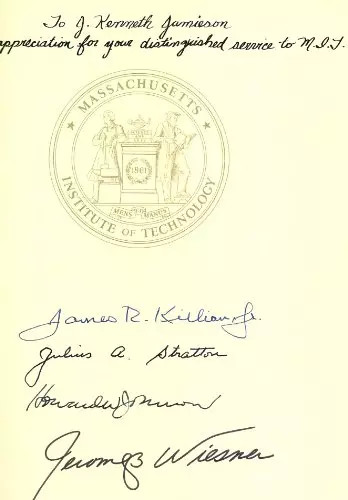 To J. Kenneth Jamieson
appreciation for your distinguished service to M.I.T.
MASSACHUSETTS
INSTITUTE OF TECHNOLOGY
1861
MENS ET MANUS
James R. Killian, Jr.
Julius A. Stratton
Howard W. Johnson
Jerome B Wiesner